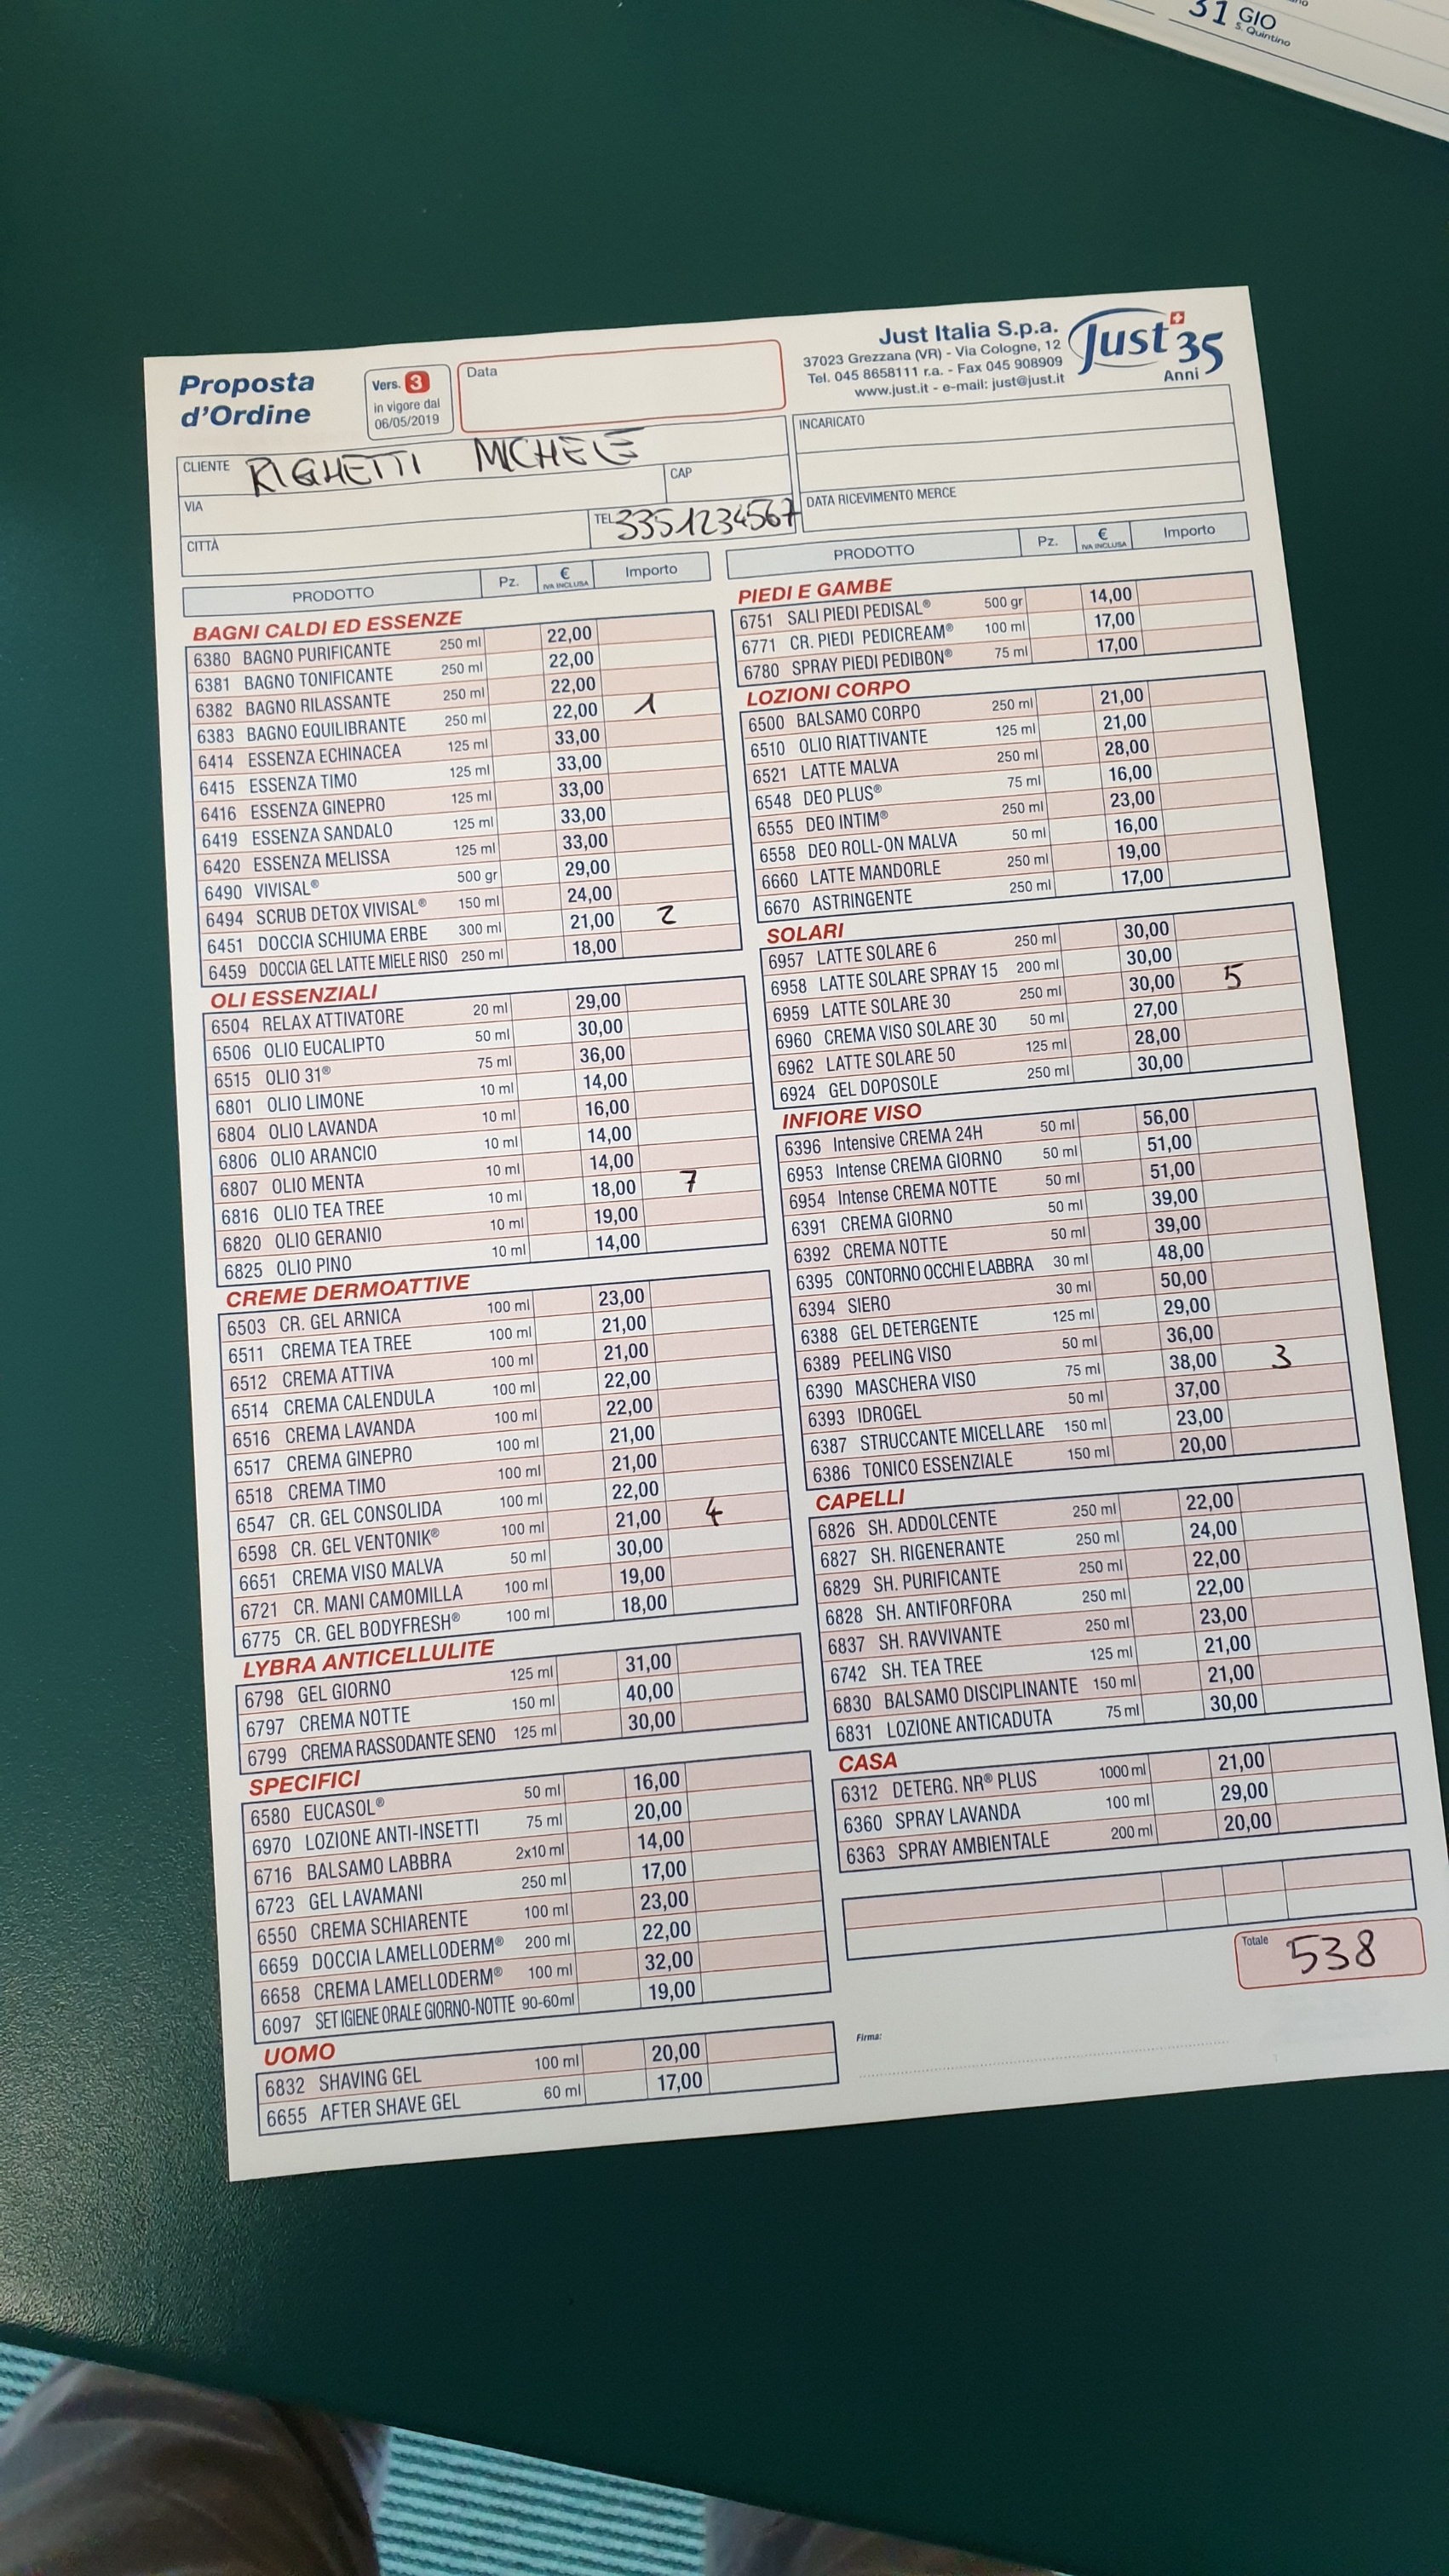 31 GIO
S. Quintino
Proposta
d'Ordine
Vers. 3
in vigore dal
06/05/2019
Data
Just Italia S.p.a.
37023 Grezzana (VR) - Via Cologne, 12
Tel. 045 8658111 r.a. - Fax 045 908909
www.just.it - e-mail: just@just.it
Just 35
Anni
CLIENTE RIGHETTI MICHELE
VIA
CAP
CITTÀ
TEL. 3351234567
INCARICATO
DATA RICEVIMENTO MERCE
PRODOTTO Pz. € IVA INCLUSA Importo
BAGNI CALDI ED ESSENZE
6380 BAGNO PURIFICANTE 250 ml 22,00
6381 BAGNO TONIFICANTE 250 ml 22,00
6382 BAGNO RILASSANTE 250 ml 22,00
6383 BAGNO EQUILIBRANTE 250 ml 22,00 1
6414 ESSENZA ECHINACEA 125 ml 33,00
6415 ESSENZA TIMO 125 ml 33,00
6416 ESSENZA GINEPRO 125 ml 33,00
6419 ESSENZA SANDALO 125 ml 33,00
6420 ESSENZA MELISSA 125 ml 33,00
6490 VIVISAL® 500 gr 29,00
6494 SCRUB DETOX VIVISAL® 150 ml 24,00
6451 DOCCIA SCHIUMA ERBE 300 ml 21,00 2
6459 DOCCIA GEL LATTE MIELE RISO 250 ml 18,00
OLI ESSENZIALI
6504 RELAX ATTIVATORE 20 ml 29,00
6506 OLIO EUCALIPTO 50 ml 30,00
6515 OLIO 31® 75 ml 36,00
6801 OLIO LIMONE 10 ml 14,00
6804 OLIO LAVANDA 10 ml 16,00
6806 OLIO ARANCIO 10 ml 14,00
6807 OLIO MENTA 10 ml 14,00
6816 OLIO TEA TREE 10 ml 18,00 7
6820 OLIO GERANIO 10 ml 19,00
6825 OLIO PINO 10 ml 14,00
CREME DERMOATTIVE
6503 CR. GEL ARNICA 100 ml 23,00
6511 CREMA TEA TREE 100 ml 21,00
6512 CREMA ATTIVA 100 ml 21,00
6514 CREMA CALENDULA 100 ml 22,00
6516 CREMA LAVANDA 100 ml 22,00
6517 CREMA GINEPRO 100 ml 21,00
6518 CREMA TIMO 100 ml 21,00
6547 CR. GEL CONSOLIDA 100 ml 22,00
6598 CR. GEL VENTONIK® 100 ml 21,00 4
6651 CREMA VISO MALVA 50 ml 30,00
6721 CR. MANI CAMOMILLA 100 ml 19,00
6775 CR. GEL BODYFRESH® 100 ml 18,00
LYBRA ANTICELLULITE
6798 GEL GIORNO 125 ml 31,00
6797 CREMA NOTTE 150 ml 40,00
6799 CREMA RASSODANTE SENO 125 ml 30,00
SPECIFICI
6580 EUCASOL® 50 ml 16,00
6970 LOZIONE ANTI-INSETTI 75 ml 20,00
6716 BALSAMO LABBRA 2x10 ml 14,00
6723 GEL LAVAMANI 250 ml 17,00
6550 CREMA SCHIARENTE 100 ml 23,00
6659 DOCCIA LAMELLODERM® 200 ml 22,00
6658 CREMA LAMELLODERM® 100 ml 32,00
6097 SET IGIENE ORALE GIORNO-NOTTE 90-60ml 19,00
UOMO
6832 SHAVING GEL 100 ml 20,00
6655 AFTER SHAVE GEL 60 ml 17,00
PRODOTTO Pz. € IVA INCLUSA Importo
PIEDI E GAMBE
6751 SALI PIEDI PEDISAL® 500 gr 14,00
6771 CR. PIEDI PEDICREAM® 100 ml 17,00
6780 SPRAY PIEDI PEDIBON® 75 ml 17,00
LOZIONI CORPO
6500 BALSAMO CORPO 250 ml 21,00
6510 OLIO RIATTIVANTE 125 ml 21,00
6521 LATTE MALVA 250 ml 28,00
6548 DEO PLUS® 75 ml 16,00
6555 DEO INTIM® 250 ml 23,00
6558 DEO ROLL-ON MALVA 50 ml 16,00
6660 LATTE MANDORLE 250 ml 19,00
6670 ASTRINGENTE 250 ml 17,00
SOLARI
6957 LATTE SOLARE 6 250 ml 30,00
6958 LATTE SOLARE SPRAY 15 200 ml 30,00
6959 LATTE SOLARE 30 250 ml 30,00 5
6960 CREMA VISO SOLARE 30 50 ml 27,00
6962 LATTE SOLARE 50 125 ml 28,00
6924 GEL DOPOSOLE 250 ml 30,00
INFIORE VISO
6396 Intensive CREMA 24H 50 ml 56,00
6953 Intense CREMA GIORNO 50 ml 51,00
6954 Intense CREMA NOTTE 50 ml 51,00
6391 CREMA GIORNO 50 ml 39,00
6392 CREMA NOTTE 50 ml 39,00
6395 CONTORNO OCCHI E LABBRA 30 ml 48,00
6394 SIERO 30 ml 50,00
6388 GEL DETERGENTE 125 ml 29,00
6389 PEELING VISO 50 ml 36,00
6390 MASCHERA VISO 75 ml 38,00 3
6393 IDROGEL 50 ml 37,00
6387 STRUCCANTE MICELLARE 150 ml 23,00
6386 TONICO ESSENZIALE 150 ml 20,00
CAPELLI
6826 SH. ADDOLCENTE 250 ml 22,00
6827 SH. RIGENERANTE 250 ml 24,00
6829 SH. PURIFICANTE 250 ml 22,00
6828 SH. ANTIFORFORA 250 ml 22,00
6837 SH. RAVVIVANTE 250 ml 23,00
6742 SH. TEA TREE 125 ml 21,00
6830 BALSAMO DISCIPLINANTE 150 ml 21,00
6831 LOZIONE ANTICADUTA 75 ml 30,00
CASA
6312 DETERG. NR® PLUS 1000 ml 21,00
6360 SPRAY LAVANDA 100 ml 29,00
6363 SPRAY AMBIENTALE 200 ml 20,00
Totale 538
Firma: